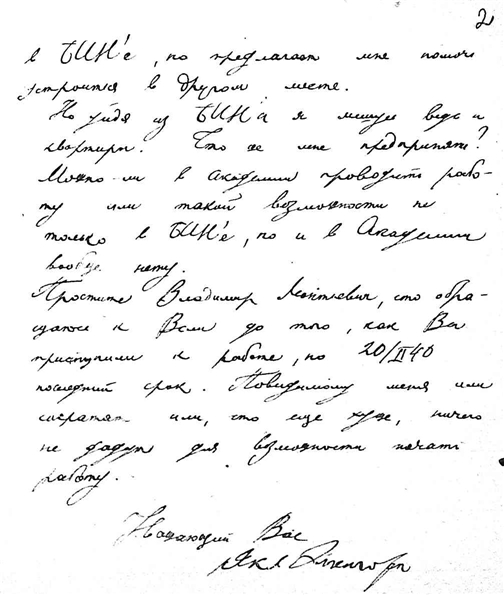 2
в БИН'е, но предлагает мне помочь
устроиться в другом месте.
Но уйдя из БИН'а я лишусь ведь и
квартиры. Что же мне предпринять?
Можно-ли в академии проводить рабо-
ту или такой возможности не
только в БИН'е, но и в Академии
вообще нету.
Простите Владимир Леонтьевич, что обра-
щаюсь к Вам до того, как Вы
приступили к работе, но 20/II 40
последний срок. Повидимому меня или
сократят или, что еще хуже, ничего
не дадут для возможности начать
работу.
Уважающий Вас